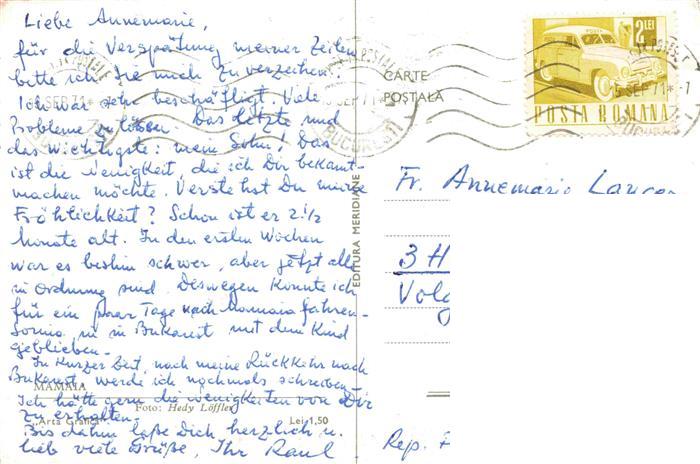 Liebe Annemarie,
für die Verspätung meiner Zeilen
bitte ich Sie mich zu verzeihen!
Ich war sehr beschäftigt. Viele
Probleme zu lösen. Das letzte und
das wichtigste: mein Sohn! Das
ist die Neuigkeit, die ich Dir bekannt-
machen möchte. Verstehst Du meine
Fröhlichkeit? Schon ist er 2 1/2
Monate alt. In den ersten Wochen
war es schwer, aber jetzt alle
in Ordnung sind. Deswegen konnte ich
für ein paar Tage nach Mamaia fahren.
in Bukarest mit dem Kind
geblieben.
In kurzer Zeit, nach meine Rückkehr nach
Bukarest, werde ich nochmals schreiben.
Ich hätte gern die wenigkeiten von Dir
zu erhalten.
Bis dahin laße Dich herzlich u.
lieb viele Grüße, Ihr Raul
MAMAIA
Foto: Hedy Löffler
"Arta Grafică" Lei 1,50
EDITURA MERIDIANE
CARTE
POȘTALĂ
2 LEI
POSTA ROMANA
15 SEP 71
BUCUREȘTI
Fr. Annemarie
3 H
Volg
Rep.